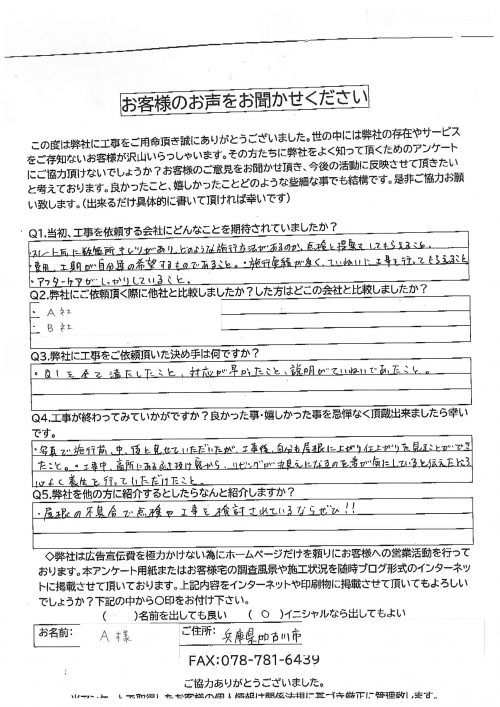 お客様のお声をお聞かせください
この度は弊社に工事をご用命頂き誠にありがとうございました。世の中には弊社の存在やサービス
をご存知ないお客様が沢山いらっしゃいます。その方たちに弊社をよく知って頂くためのアンケート
にご協力頂けないでしょうか？お客様のご意見をお聞かせ頂き、今後の活動に反映させて頂きたい
と考えております。良かったこと、嬉しかったことどのような些細な事でも結構です。是非ご協力お願
い致します。（出来るだけ具体的に書いて頂ければ幸いです）
Q1.当初、工事を依頼する会社にどんなことを期待されていましたか？
・スレート瓦に数箇所キレツがあり、どのような施行方法があるのか、点検と提案をしてもらえること。
・費用、工期が自分達の希望するものであること。・施行実績が多く、ていねいに工事を行ってもらえること
・アフターケアがしっかりしていること。
Q2.弊社にご依頼頂く際に他社と比較しましたか？した方はどこの会社と比較しましたか？
・A社
・B社
Q3.弊社に工事をご依頼頂いた決め手は何ですか？
・Q1を全て満たしたこと、対応が早かったこと、説明がていねいであったこと。
Q4.工事が終わってみていかがですか？良かった事・嬉しかった事を忌憚なく頂戴出来ましたら幸い
です。
・写真で施行前、中、後と見せていただいたが、工事後、自分も屋根に上がり仕上がりを見ることができ
たこと。・工事中、高所にある吹き抜け窓から、リビングが丸見えになるのを妻が気にしていると伝えたところ
心よく養生を行っていただけたこと。
Q5.弊社を他の方に紹介するとしたらなんと紹介しますか？
・屋根の不具合で点検や工事を検討されているならぜひ!!
◇弊社は広告宣伝費を極力かけない為にホームページだけを頼りにお客様への営業活動を行って
おります。本アンケート用紙またはお客様宅の調査風景や施工状況を随時ブログ形式のインターネッ
トに掲載させて頂いております。上記内容をインターネットや印刷物に掲載させて頂いてもよろしい
でしょうか？下記の中から〇印をお付け下さい。
（　　）名前を出しても良い （ ○ ）イニシャルなら出してもよい
お名前： A様 ご住所： 兵庫県加古川市
FAX:078-781-6439
ご協力ありがとうございました。
当アンケートで取得したお客様の個人情報は関係法規に基づき厳正に管理致します。